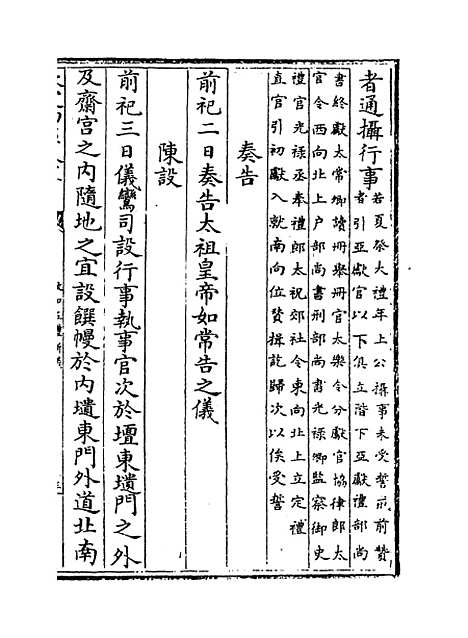 者通攝行事若夏祭大禮年上公攝事未受誓前贊
者引亞獻官以下俱立階下亞獻禮部尚
書終獻太常卿讀冊舉冊官太樂令分獻官協律郎太
官令西向北上户部尚書刑部尚書光祿卿監察御史
禮官光祿丞奉禮郎太祝郊社令東向北上立定禮
直官引初獻入就南向位贊揖訖歸次以俟受誓
奏告
前祀二日奏告太祖皇帝如常告之儀
陳設
前祀三日儀鸞司設行事執事官次於壇東壝門之外
及齋宫之内隨地之宜設饌幔於内壝東門外道北南